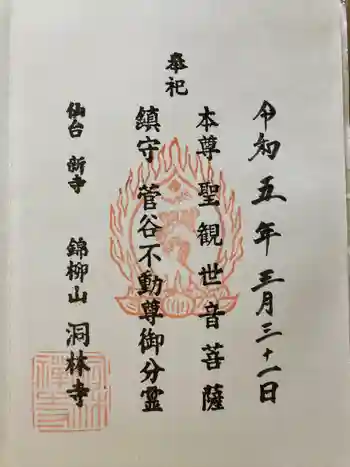 令和五年三月三十一日
奉祀
本尊 聖観世音菩薩
鎮守 菅谷不動尊御分霊
仙台 新寺
錦柳山 洞林寺